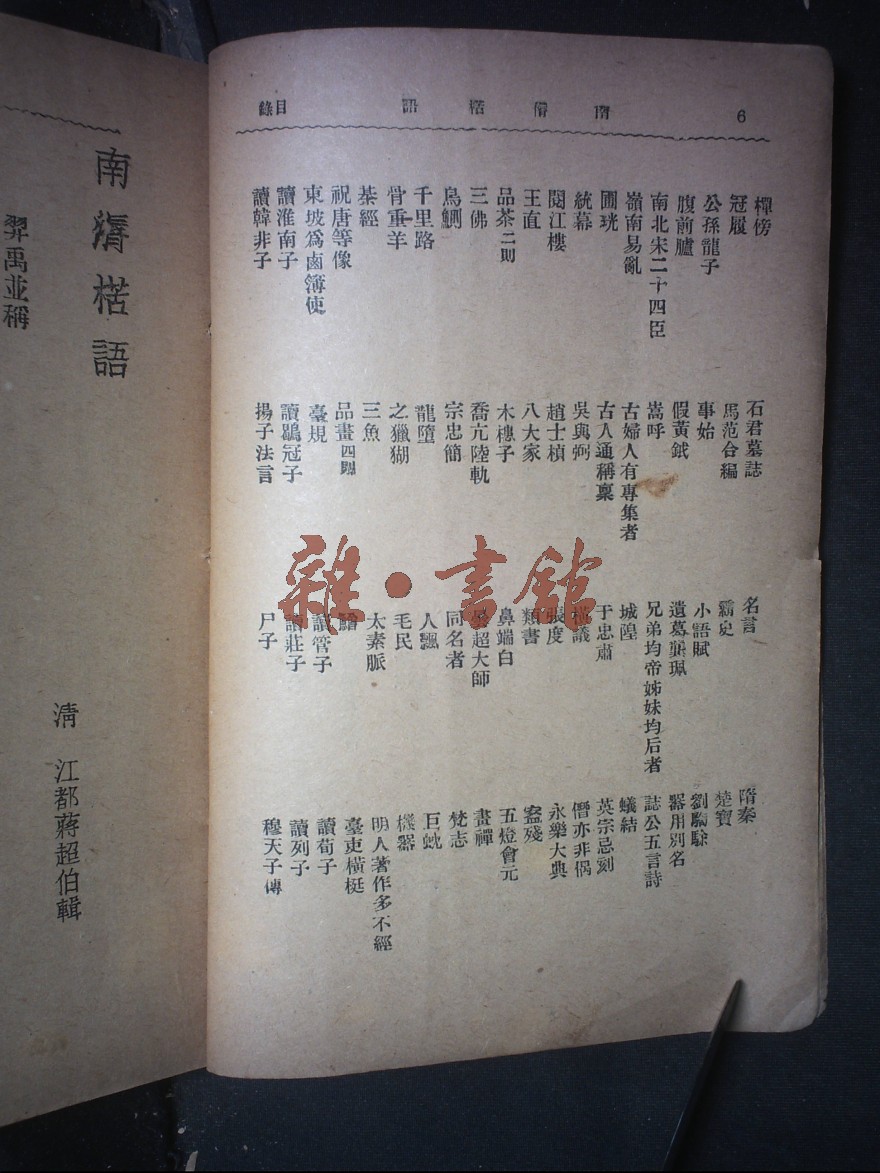 6
南漘楛語
目錄
樿傍
冠履
公孫龍子
腹前臚
南北宋二十四臣
嶺南易亂
圃珖
統幕
閱江樓
王直
品茶二則
三佛
鳥鰂
千里路
骨重羊
棊經
祝唐等像
東坡爲鹵簿使
讀淮南子
讀韓非子
石君墓誌
馬范合編
事始
假黃鉞
嵩呼
古婦人有專集者
古人通稱稟
吳與弼
趙士楨
八大家
木櫘子
喬亢陸軌
宗忠簡
龍墮
之獵猢
三魚
品畫四則
臺規
讀鶡冠子
揚子法言
名言
霸史
小語賦
遺墓龔珮
兄弟均帝姊妹均后者
城隍
于忠肅
橫議
張度
類書
鼻端白
超大師
同名者
人飄
毛民
太素脈
讀管子
讀莊子
尸子
隋秦
楚寶
劉騊駼
器用別名
誌公五言詩
蟻結
英宗忌刻
僭亦非偶
永樂大典
盔殘
五燈會元
畫禪
梵志
巨蚘
機器
明人著作多不經
臺吏橫梃
讀荀子
讀列子
穆天子傳
南漘楛語
清 江都蔣超伯輯
羿禹並稱
雜·書館